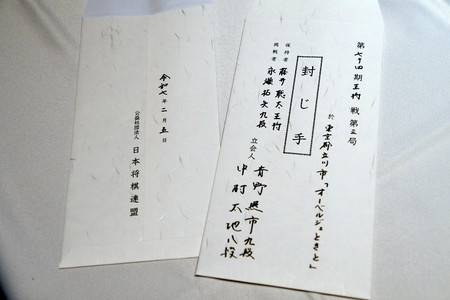 第七十四期王将戦第三局
於 東京都立川市「オーベルジュときと」
封じ手
保持者 藤井聡太王将
挑戦者 永瀬拓矢九段
立会人 青野照市九段
中村太地八段
令和七年二月五日
公益社団法人 日本将棋連盟